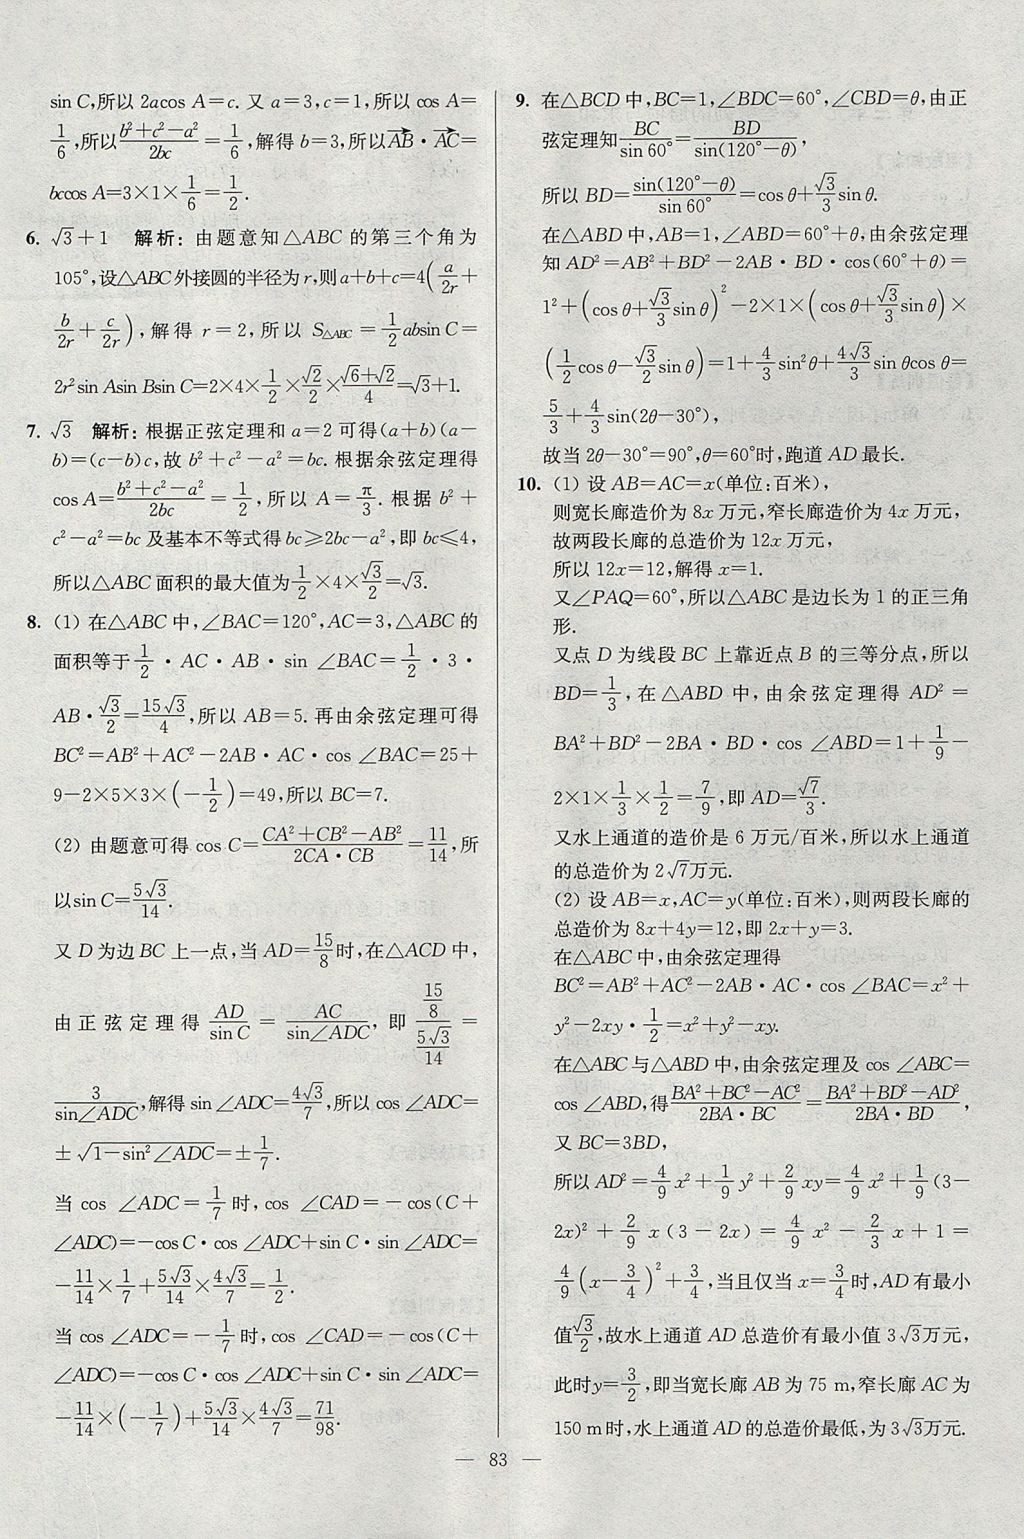 sin C,所以 2acos A=c. 又 a=3,c=1,所以 cos A=
1/6,所以(b²+c²-a²)/2bc=1/6,解得 b=3,所以AB→·AC→=
bccos A=3×1×1/6=1/2.
6. √3+1 解析:由题意知△ABC 的第三个角为
105°,设△ABC外接圆的半径为 r,则 a+b+c=4(a/2r+
b/2r+c/2r),解得 r=2,所以 S△ABC=1/2absin C=
2r²sin Asin Bsin C=2×4×1/2×√2/2×(√6+√2)/4=√3+1.
7. √3 解析:根据正弦定理和 a=2 可得(a+b)(a-
b)=(c-b)c,故 b²+c²-a²=bc. 根据余弦定理得
cos A=(b²+c²-a²)/2bc=1/2,所以 A=π/3. 根据 b²+
c²-a²=bc 及基本不等式得 bc≥2bc-a²,即 bc≤4,
所以△ABC 面积的最大值为1/2×4×√3/2=√3.
8. (1) 在△ABC 中,∠BAC=120°,AC=3,△ABC 的
面积等于1/2·AC·AB·sin ∠BAC=1/2·3·
AB·√3/2=15√3/4,所以 AB=5. 再由余弦定理可得
BC²=AB²+AC²-2AB·AC·cos ∠BAC=25+
9-2×5×3×(-1/2)=49,所以 BC=7.
(2) 由题意可得 cos C=(CA²+CB²-AB²)/(2CA·CB)=11/14,所
以sin C=5√3/14.
又 D 为边 BC 上一点,当 AD=15/8时,在△ACD 中,
由正弦定理得 AD/sin C=AC/sin∠ADC,即 (15/8)/(5√3/14)=
3/sin∠ADC,解得 sin ∠ADC=4√3/7,所以 cos ∠ADC=
±√(1-sin²∠ADC)=±1/7.
当 cos ∠ADC=1/7时,cos ∠CAD=-cos(C+
∠ADC)=-cos C·cos ∠ADC+sin C·sin ∠ADC=
-11/14×1/7+5√3/14×4√3/7=1/2.
当 cos ∠ADC=-1/7时,cos ∠CAD=-cos(C+
∠ADC)=-cos C·cos ∠ADC+sin C·sin ∠ADC=
-11/14×(-1/7)+5√3/14×4√3/7=71/98.
9. 在△BCD 中,BC=1,∠BDC=60°,∠CBD=θ,由正
弦定理知BC/sin 60°=BD/sin(120°-θ),
所以 BD=sin(120°-θ)/sin 60°=cos θ+√3/3sin θ.
在△ABD 中,AB=1,∠ABD=60°+θ,由余弦定理
知 AD²=AB²+BD²-2AB·BD·cos(60°+θ)=
1²+(cos θ+√3/3sin θ)²-2×1×(cos θ+√3/3sin θ)×
(1/2cos θ-√3/2sin θ)=1+4/3sin²θ+4√3/3sin θcos θ=
5/3+4/3sin(2θ-30°),
故当 2θ-30°=90°,θ=60°时,跑道 AD 最长.
10. (1) 设 AB=AC=x(单位:百米),
则宽长廊造价为 8x 万元,窄长廊造价为 4x 万元,
故两段长廊的总造价为 12x 万元,
所以 12x=12,解得 x=1.
又∠PAQ=60°,所以△ABC 是边长为 1 的正三角
形.
又点 D 为线段 BC 上靠近点 B 的三等分点,所以
BD=1/3,在△ABD 中,由余弦定理得 AD²=
BA²+BD²-2BA·BD·cos ∠ABD=1+1/9-
2×1×1/3×1/2=7/9,即 AD=√7/3.
又水上通道的造价是 6 万元/百米,所以水上通道
的总造价为 2√7万元.
(2) 设 AB=x,AC=y(单位:百米),则两段长廊的
总造价为 8x+4y=12,即 2x+y=3.
在△ABC 中,由余弦定理得
BC²=AB²+AC²-2AB·AC·cos ∠BAC=x²+
y²-2xy·1/2=x²+y²-xy.
在△ABC 与△ABD 中,由余弦定理及 cos ∠ABC=
cos ∠ABD,得(BA²+BC²-AC²)/(2BA·BC)=(BA²+BD²-AD²)/(2BA·BD),
又 BC=3BD,
所以 AD²=4/9x²+1/9y²+2/9xy=4/9x²+1/9(3-
2x)²+2/9x(3-2x)=4/9x²-2/3x+1=
4/9(x-3/4)²+3/4,当且仅当 x=3/4时,AD 有最小
值√3/2,故水上通道 AD 总造价有最小值 3√3万元,
此时y=3/2,即当宽长廊 AB 为 75 m,窄长廊 AC 为
150 m时,水上通道 AD 的总造价最低,为 3√3万元.
— 83 —